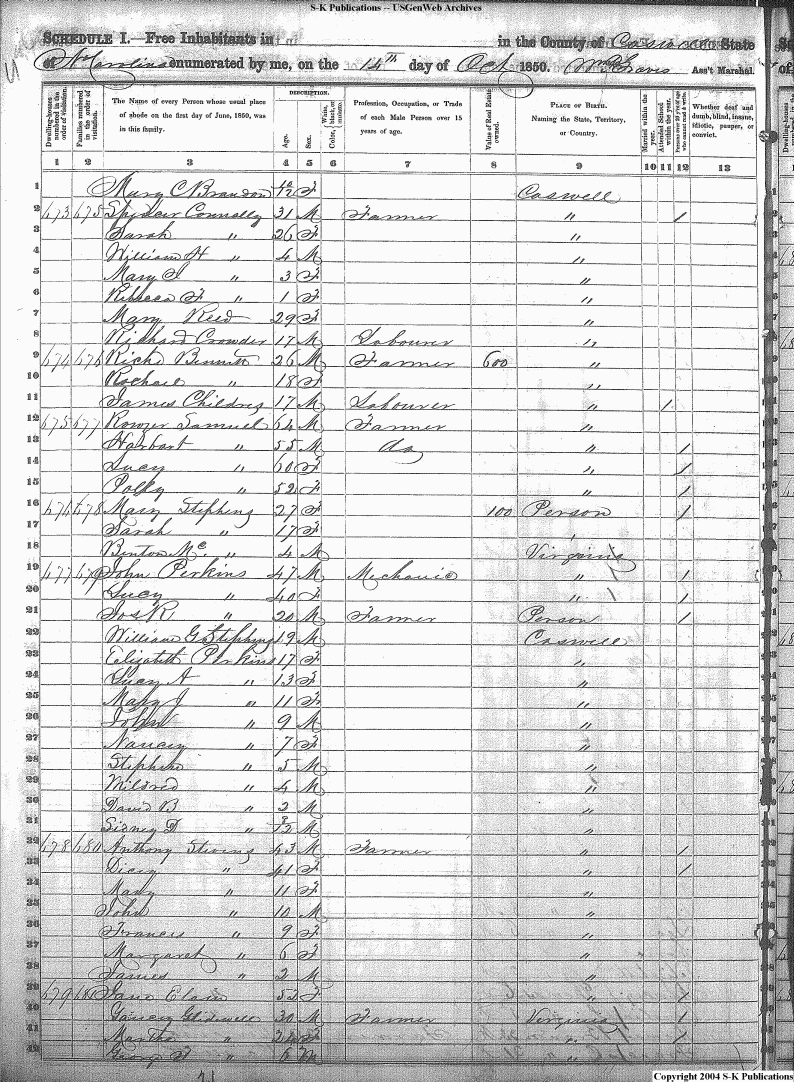 S-K Publications -- USGenWeb Archives
SCHEDULE I.—Free Inhabitants in in the County of Caswell State
of N. Carolina enumerated by me, on the 14th day of Oct 1850. Wm Graves Ass't Marshal.
Dwelling-houses numbered in the order of visitation. Families numbered in the order of visitation. The Name of every Person whose usual place of abode on the first day of June, 1850, was in this family. DESCRIPTION. Age. Sex. Color, White, black, or mulatto. Profession, Occupation, or Trade of each Male Person over 15 years of age. Value of Real Estate owned. PLACE OF BIRTH. Naming the State, Territory, or Country. Married within the year. Attended School within the year. Persons over 20 y'rs of age who cannot read & write. Whether deaf and dumb, blind, insane, idiotic, pauper, or convict.
1 2 3 4 5 6 7 8 9 10 11 12 13
1 Mary C Brandon 10/12 F Caswell
2 673 675 Spencer Connally 31 M Farmer " /
3 Sarah " 26 F "
4 William H " 4 M "
5 Mary " 3 F "
6 Rebecca F " 1 F "
7 Mary Reed 29 F "
8 Richard Crowder 17 M Labourer "
9 674 676 Richd Bennett 26 M Farmer 600 "
10 Rachael " 18 F "
11 James Childres 17 M Labourer " /
12 675 677 Samuel 64 M Farmer "
13 Harbart " 55 M do " /
14 Lucy " 60 F " /
15 Polly " 52 F " /
16 676 678 Mary Stephens 27 F 100 Person /
17 Sarah " 17 F "
18 Benton Mc " 4 M Virginia
19 677 679 John Perkins 47 M Mechanic " /
20 Lucy " 40 F " /
21 Jos R " 20 M Farmer Person /
22 William G Stephens 19 M Caswell
23 Elizabeth Perkins 17 F "
24 Lucy A " 13 F "
25 Mary J " 11 F "
26 John " 9 M "
27 Nancy " 7 F "
28 Stephen " 5 M "
29 Mildred " 4 M "
30 David B " 2 M "
31 Sidney D " 3/12 M "
32 678 680 Anthony Stevens 43 M Farmer " /
33 Dicey " 41 F " /
34 Mary " 11 F "
35 John " 10 M "
36 Frances " 9 F "
37 Margaret " 6 F "
38 James " 2 M "
39 679 681 Jane 53 F " /
40 Glidewell 30 M Farmer Virginia /
41 Martha " 24 F " /
42 George " 6 M "
Copyright 2004 S-K Publications